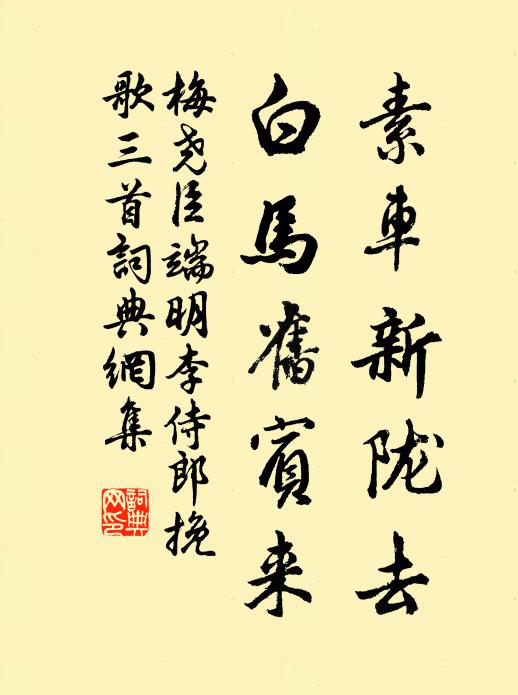 素車新陇去
白馬舊賓来
梅尧臣端明李侍郎挽
歌三首詞典網集
詞典
网印